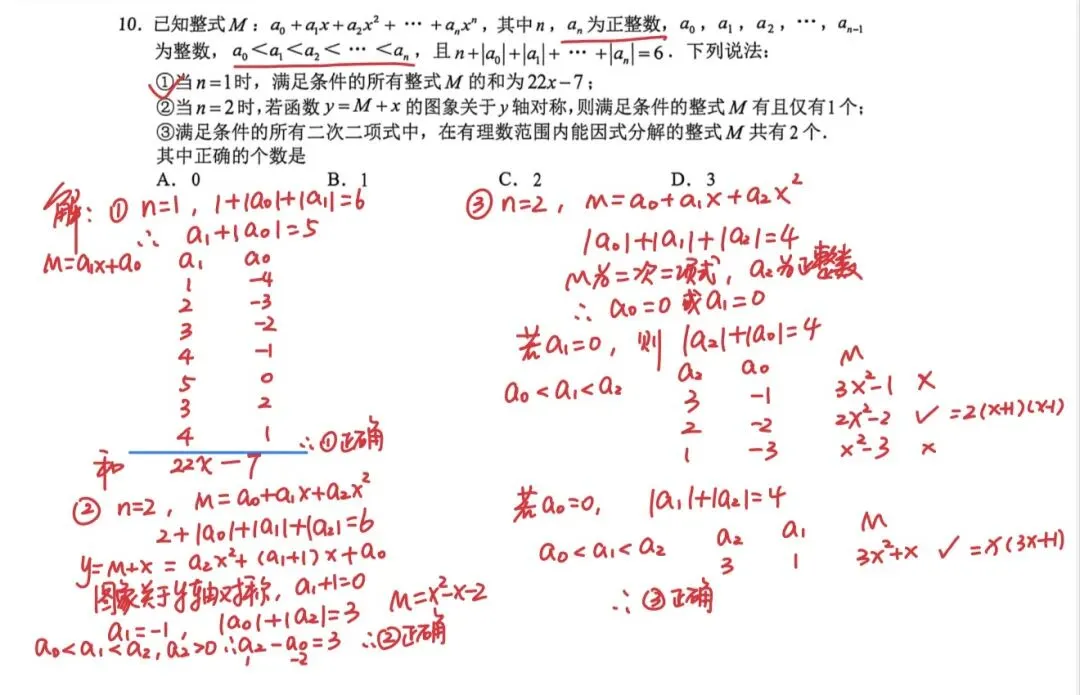 10. 已知整式M:a₀+a₁x+a₂x²+⋯+aₙxⁿ,其中n,aₙ为正整数,a₀,a₁,a₂,⋯,aₙ₋₁
为整数,a₀<a₁<a₂<⋯<aₙ,且n+|a₀|+|a₁|+⋯+|aₙ|=6.下列说法:
①当n=1时,满足条件的所有整式M的和为22x-7;
②当n=2时,若函数y=M+x的图象关于y轴对称,则满足条件的整式M有且仅有1个;
③满足条件的所有二次二项式中,在有理数范围内能因式分解的整式M共有2个.
其中正确的个数是
A. 0 B. 1 C. 2 D. 3
解:① n=1, 1+|a₀|+|a₁|=6
∴ a₁+|a₀|=5
M=a₁x+a₀ a₁ a₀
1 -4
2 -3
3 -2
4 -1
5 0
3 2
4 1 ∴①正确
和 22x-7
② n=2, M=a₀+a₁x+a₂x²
2+|a₀|+|a₁|+|a₂|=6
y=M+x=a₂x²+(a₁+1)x+a₀
图象关于y轴对称, a₁+1=0
a₁=-1, |a₀|+|a₂|=3 M=x²-x-2
a₀<a₁<a₂, a₂>0 ∴a₂-a₀=3 ∴②正确
1 -2
③ n=2, M=a₀+a₁x+a₂x²
|a₀|+|a₁|+|a₂|=4
M为二次二项式, a₂为正整数
∴ a₀=0或a₁=0
若a₁=0, 则 |a₂|+|a₀|=4
a₀<a₁<a₂ a₂ a₀ M
3 -1 3x²-1 ×
2 -2 2x²-2 ✓ =2(x+1)(x-1)
1 -3 x²-3 ×
若a₀=0, |a₁|+|a₂|=4
a₀<a₁<a₂ a₂ a₁ M
3 1 3x²+x ✓ =x(3x+1)
∴ ③正确